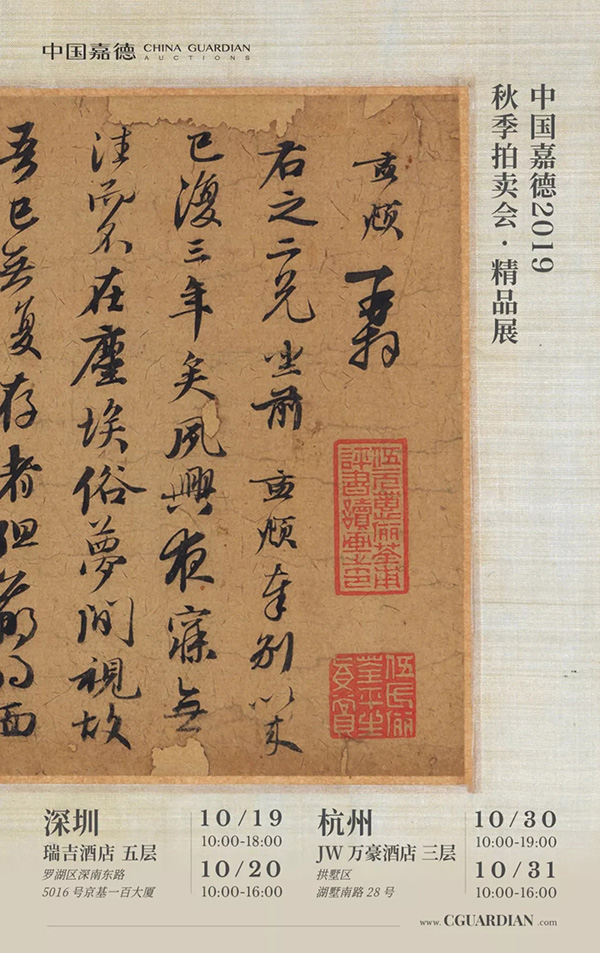 中国嘉德 CHINA GUARDIAN
AUCTIONS
中国嘉德2019
秋季拍卖会·精品展
孟頫
再拜
右之二兄坐前孟頫奉别以来
已復三年矣夙興夜寐無
往而不在塵埃俗夢間視故
吾已無复存者但
面
深圳
瑞吉酒店 五层
罗湖区深南东路
5016 号京基一百大厦
10/19
10:00-18:00
10/20
10:00-16:00
杭州
JW 万豪酒店 三层
拱墅区
湖墅南路 28 号
10/30
10:00-19:00
10/31
10:00-16:00
www.CGUARDIAN.com